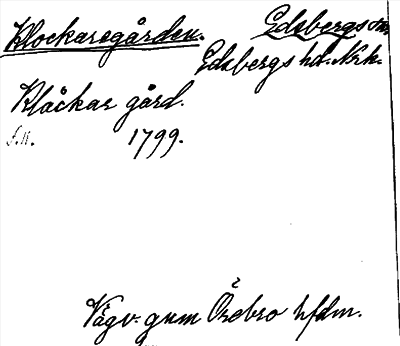 Klockaregården. Edsbergs sn,
Edsbergs hd. Nrk.
Klåckar gård.
f.n. 1799.
Vägv. gnm Örebro hfdm.